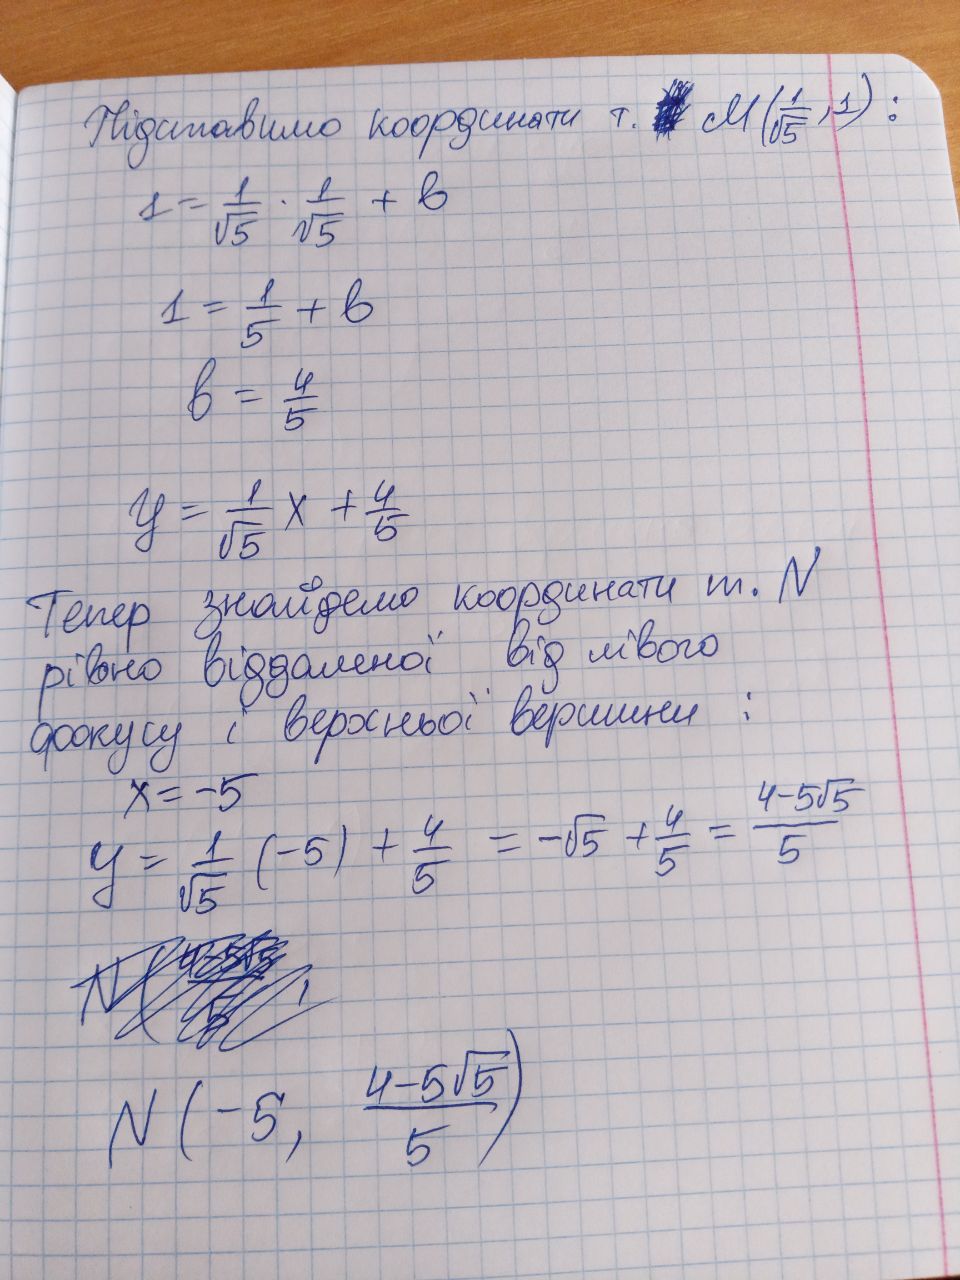 Підставимо координати т. M(1/√5, 1):
1 = 1/√5 · 1/√5 + b
1 = 1/5 + b
b = 4/5
y = 1/√5 x + 4/5
Тепер знайдемо координати т. N
рівно віддаленої від лівого
фокусу і верхньої вершини :
x = -5
y = 1/√5 (-5) + 4/5 = -√5 + 4/5 = (4-5√5)/5
N(-5, (4-5√5)/5)